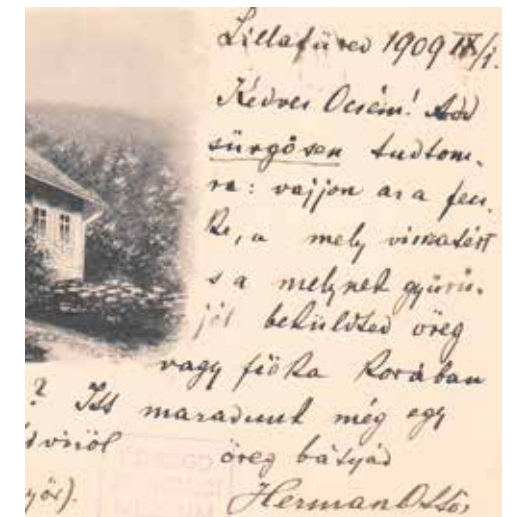 Lillafüred 1909 IX/1.
Kedves Öcsém! Add
sürgősen tudtom-
ra: vajjon az a fecs-
ke, a mely visszatért
s a melynek gyürü-
jét beküldted öreg
vagy fióka korában
? Itt maradunk még egy
öreg bátyád
Herman Ottó